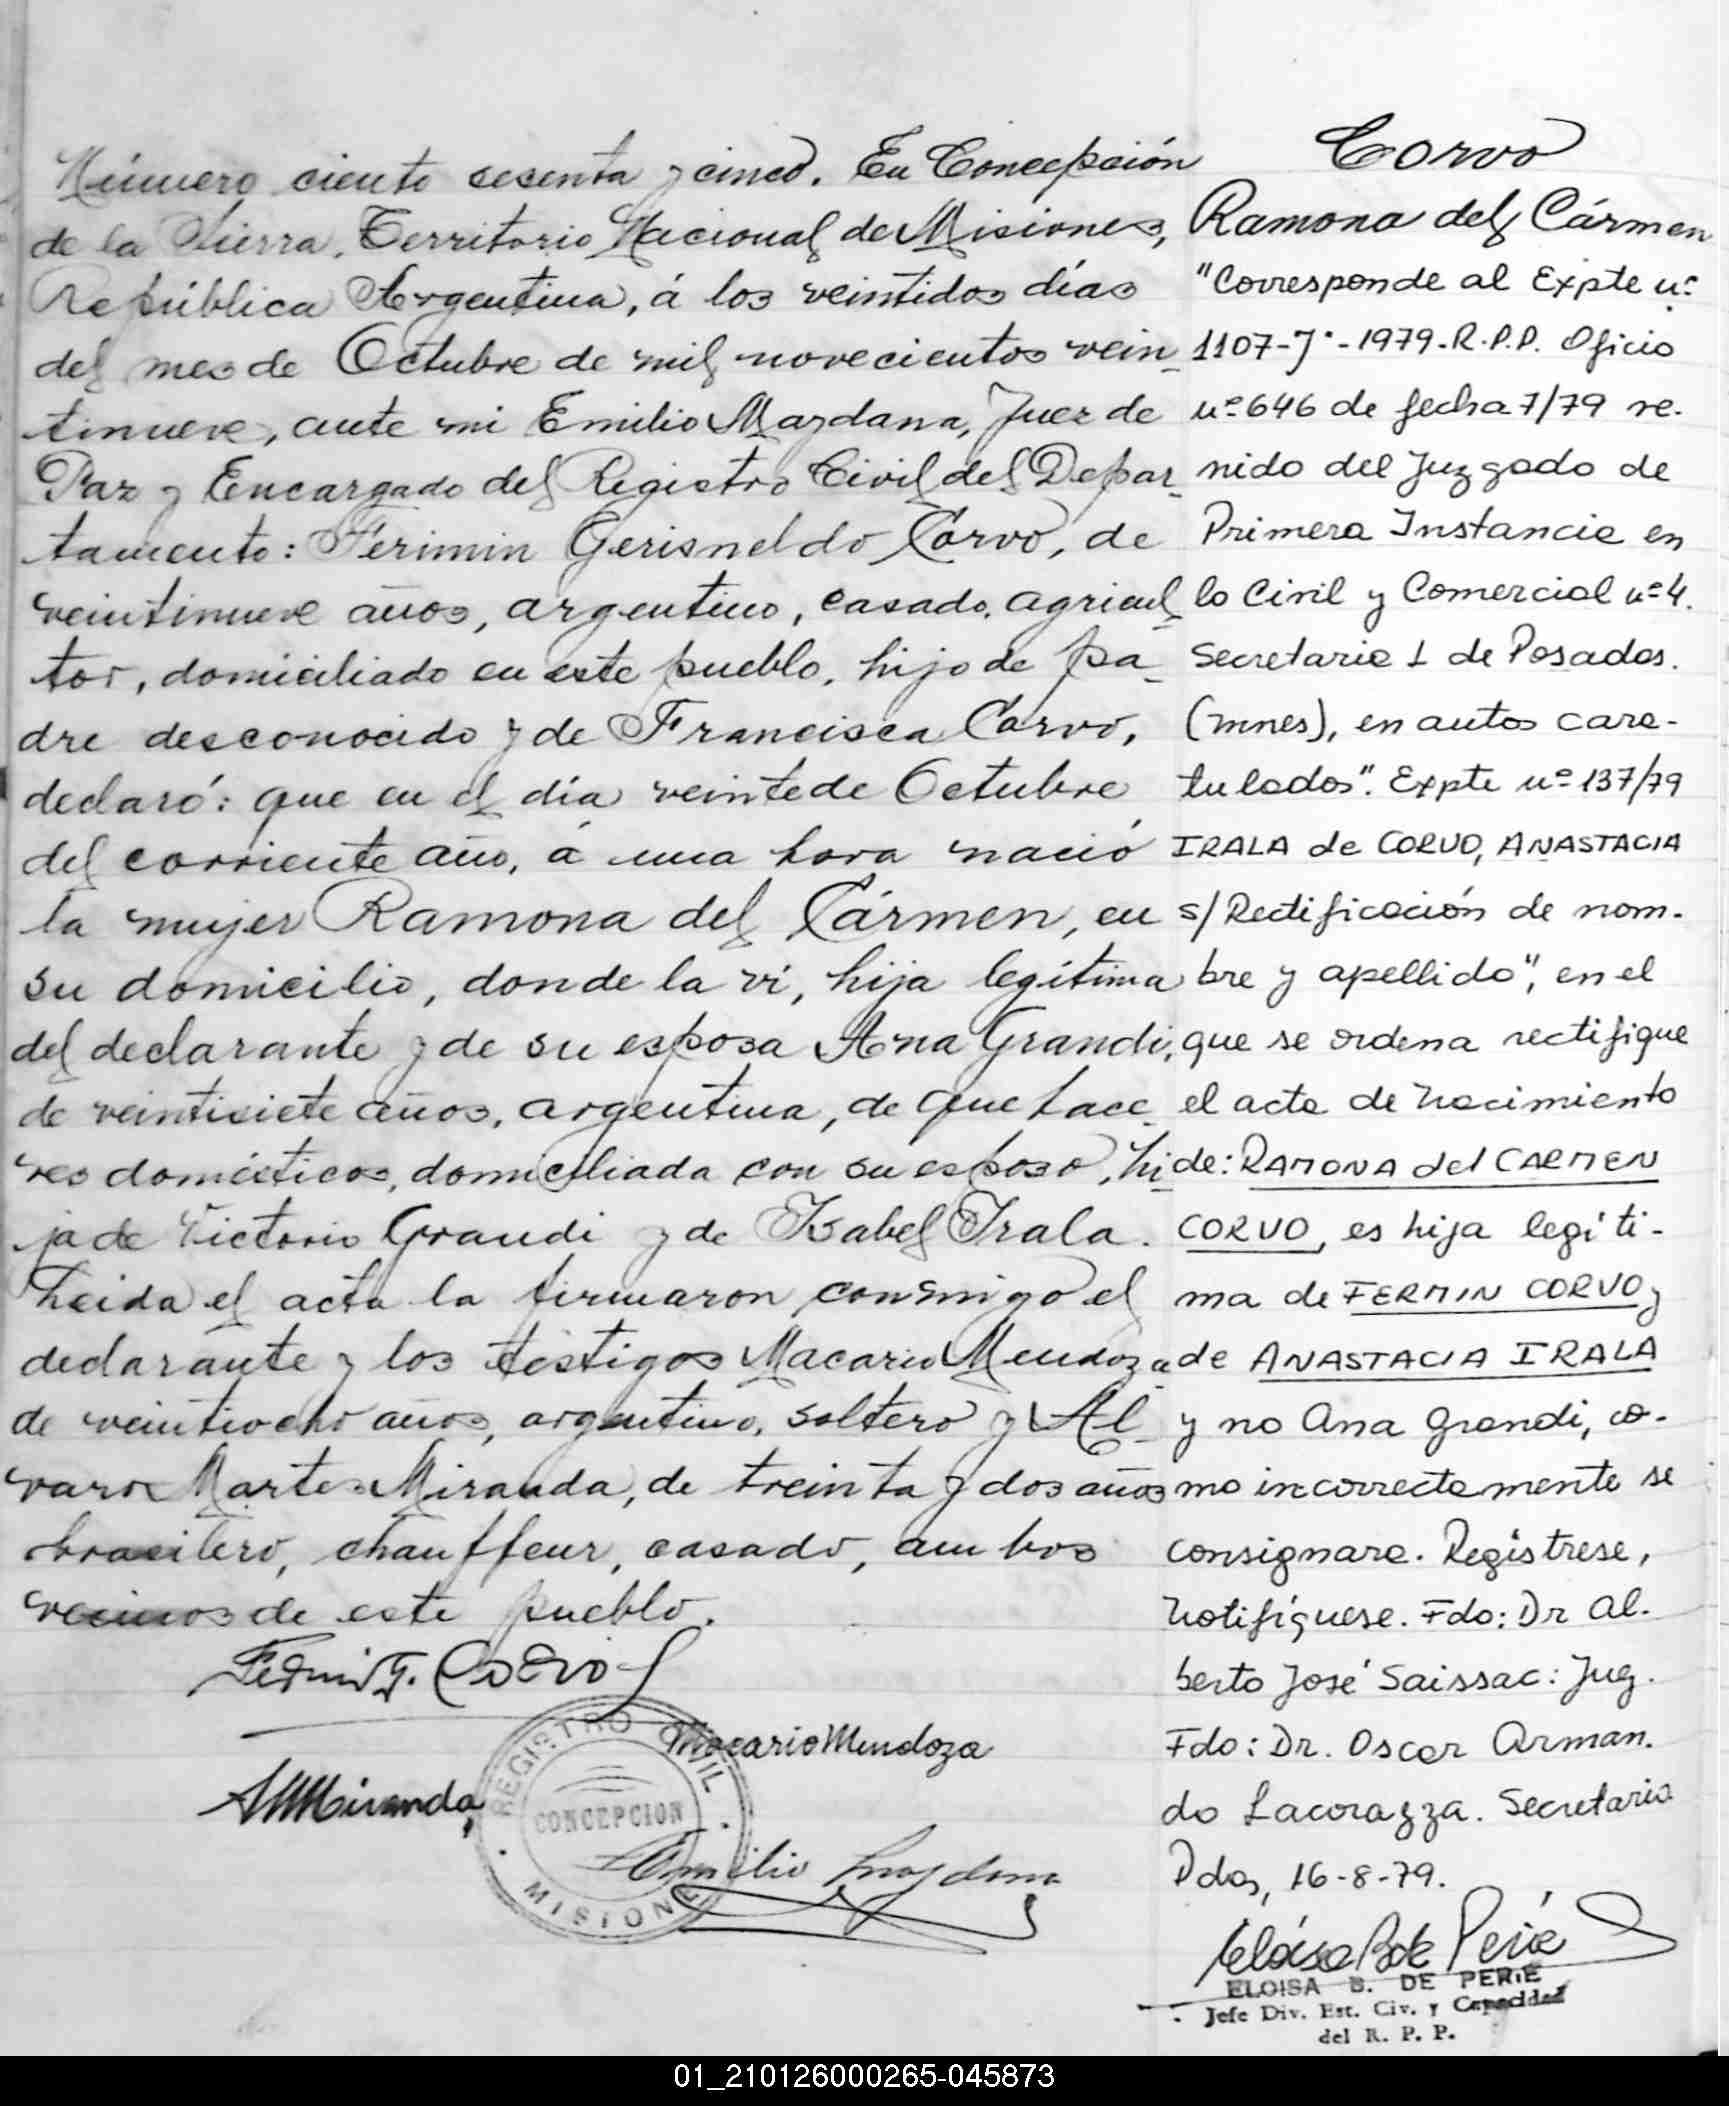 Número ciento sesenta y cinco. En Concepción
de la Sierra, Territorio Nacional de Misiones,
República Argentina, á los veintidos días
del mes de Octubre de mil novecientos vein
tinueve, ante mi Emilio Maydana, Juez de
Paz y Encargado del Registro Civil del Depar
tamento: Ferimin Gerisneldo Corvo, de
veintinueve años, argentino, casado, agricul
tor, domiciliado en este pueblo, hijo de pa
dre desconocido y de Francisca Corvo,
declaró: que en el día veinte de Octubre
del corriente año, á una hora nació
la mujer Ramona del Cármen, en
su domicilio, donde la ví, hija legítima
del declarante y de su esposa Ana Grandi,
de veintisiete años, argentina, de quehace
res domésticos, domiciliada con su esposo, hi
ja de Victorio Grandi y de Isabel Irala.
Leida el acta la firmaron conmigo el
declarante y los testigos Macario Mendoza
de veintiocho años, argentino, soltero y Al
varo Martes Miranda, de treinta y dos años
brasilero, chauffeur, casado, ambos
vecinos de este pueblo.
Fermin G. Corvo
Macario Mendoza
AMMiranda
REGISTRO CIVIL
CONCEPCION
MISIONES
Emilio Maydana
Corvo
Ramona del Cármen
"Corresponde al Expte nº
1107-J-1979-R.P.P. Oficio
nº 646 de fecha 7/79 ve-
nido del Juzgado de
Primera Instancia en
lo Civil y Comercial nº 4.
Secretaria 1 de Posadas.
(mnes), en autos cara-
tulados". Expte nº 137/79
IRALA de CORVO, ANASTACIA
s/ Rectificación de nom-
bre y apellido", en el
que se ordena rectifique
el acta de nacimiento
de: RAMONA del CARMEN
CORVO, es hija legíti-
ma de FERMIN CORVO y
de ANASTACIA IRALA
y no Ana Grandi, co-
mo incorrectamente se
consignara. Regístrese,
notifíquese. Fdo: Dr Al-
berto José Saissac: Juez.
Fdo: Dr. Oscar Arman-
do Lacorazza. Secretario
Pdas, 16-8-79.
Eloisa B de Perié
ELOISA B. DE PERIE
Jefe Div. Est. Civ. y Capacidad
del R. P. P.
01_210126000265-045873